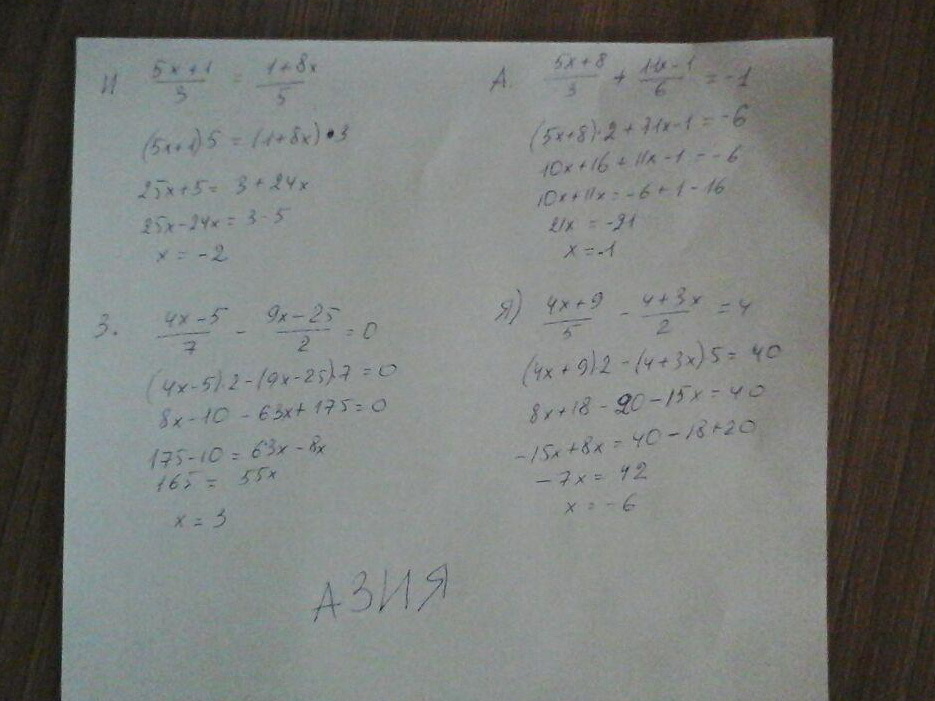 И (5x+1)/3 = (1+8x)/5
(5x+1)·5 = (1+8x)·3
25x+5 = 3+24x
25x-24x = 3-5
x = -2
А. (5x+8)/3 + (11x-1)/6 = -1
(5x+8)·2+11x-1 = -6
10x+16+11x-1 = -6
10x+11x = -6+1-16
21x = -21
x = -1
З. (4x-5)/7 - (9x-25)/2 = 0
(4x-5)·2-(9x-25)·7 = 0
8x-10-63x+175=0
175-10 = 63x-8x
165 = 55x
x = 3
Я) (4x+9)/5 - (4+3x)/2 = 4
(4x+9)2-(4+3x)5 = 40
8x+18-20-15x = 40
-15x+8x = 40-18+20
-7x = 42
x = -6
АЗИЯ